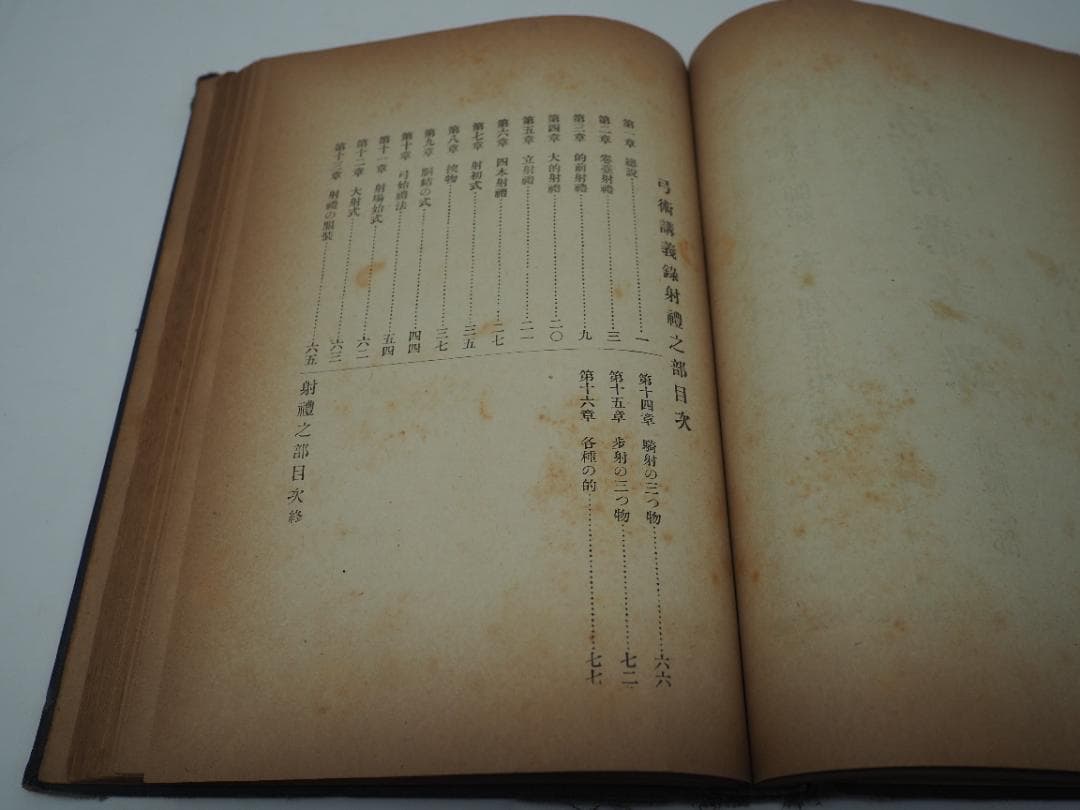 弓術講義錄射禮之部目次
第一章 總說……一
第二章 卷藁射禮……三
第三章 的前射禮……九
第四章 大的射禮……二〇
第五章 立射禮……二一
第六章 四本射禮……二七
第七章 射初式……三五
第八章 挾物……三七
第九章 結の式……四四
第十章 弓始禮法……五四
第十一章 射場始式……六二
第十二章 大射式……六三
第十三章 射禮の服裝……六五
第十四章 騎射の三つ物……六六
第十五章 步射の三つ物……七二
第十六章 各種の的……七七
射禮之部目次終